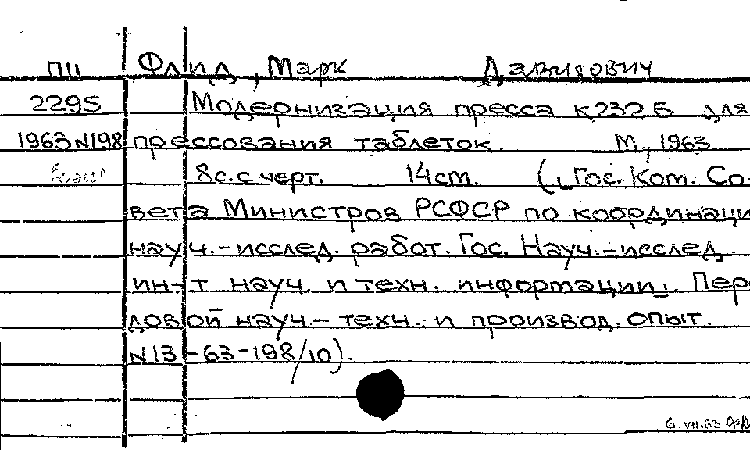 ПП Флид, Марк Давидович
2295 Модернизация пресса к232Б для
1963 N198 прессования таблеток. М, 1963
8с. с черт. 14 cm. („Гос. Ком. Со-
вета Министров РСФСР по координаци
науч.-исслед. работ. Гос. Науч.-исслед.
ин-т науч. и техн. информации„. Пере
довой науч.-техн. и производ. опыт.
N13-63-198/10).